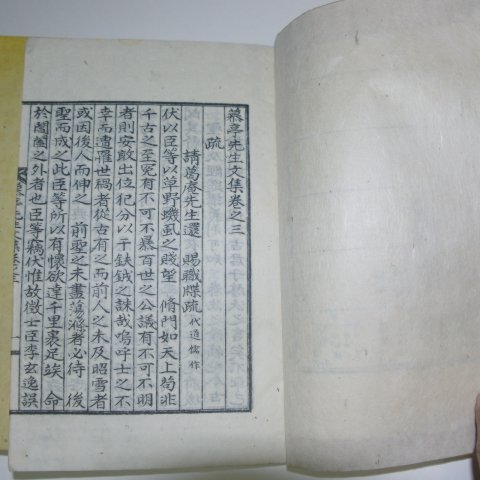 慕亭先生文集卷之三
疏
請葛庵先生還 賜職牒疏 代道儒作
伏以臣等以草野蟣虱之賤望 脩門如天上苟非
千古之至冤有不可不暴百世之公議有不可不明
者則安敢出位犯分以干鈇鉞之誅哉嗚呼士之不
幸而遭罹世禍者從古有之而前人之未及昭雪者
或因後人而伸之 前聖之未盡蕩滌者必待 後
聖而成之此臣等所以有懷欲達千里裹足竢 命
於閶闔之外者也臣等竊伏惟故徵士臣李玄逸誤